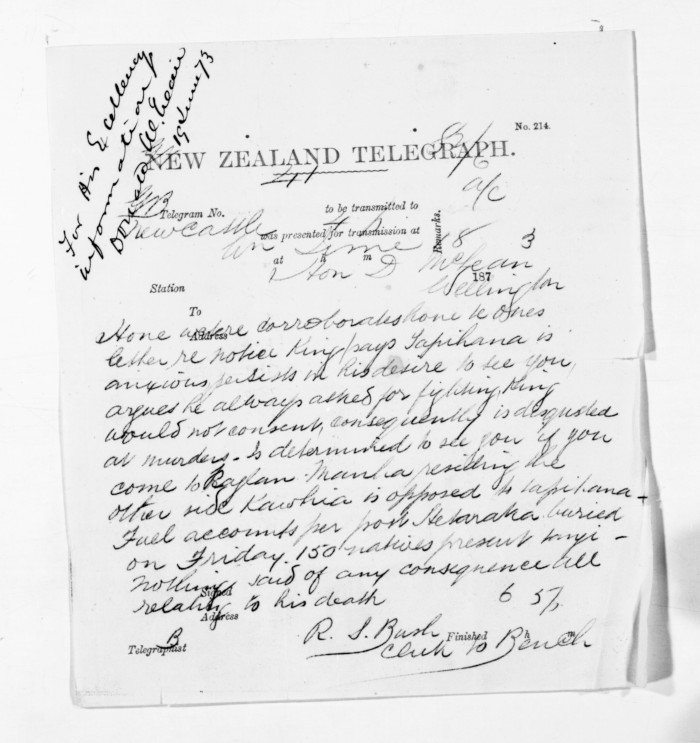 For His Excellency
information
Donald McLean
19 June 73
No. 214.
NEW ZEALAND TELEGRAPH.
a/c
Telegram No. to be transmitted to
Newcastle
was presented for transmission at
Remarks.
18 3
at h m 187
Hon D McLean
Wellington
Station
To
Address
Hone Wetere corroborates Hone te One's
letter re notice King says Tapihana is
anxious persists in his desire to see you,
argues he always asked for fighting, King
would not consent, consequently is disgusted
at murders. Is determined to see you if you
come to Raglan. Manha residing the
other side Kawhia is opposed to Tapihana -
Fuel accounts per post Hetaraka buried
on Friday. 150 natives present tangi -
nothing said of any consequence all
relating to his death
Signed
6 57
Address
R. S. Bush
Clerk to Bench
B
Telegraphist
Finished h m